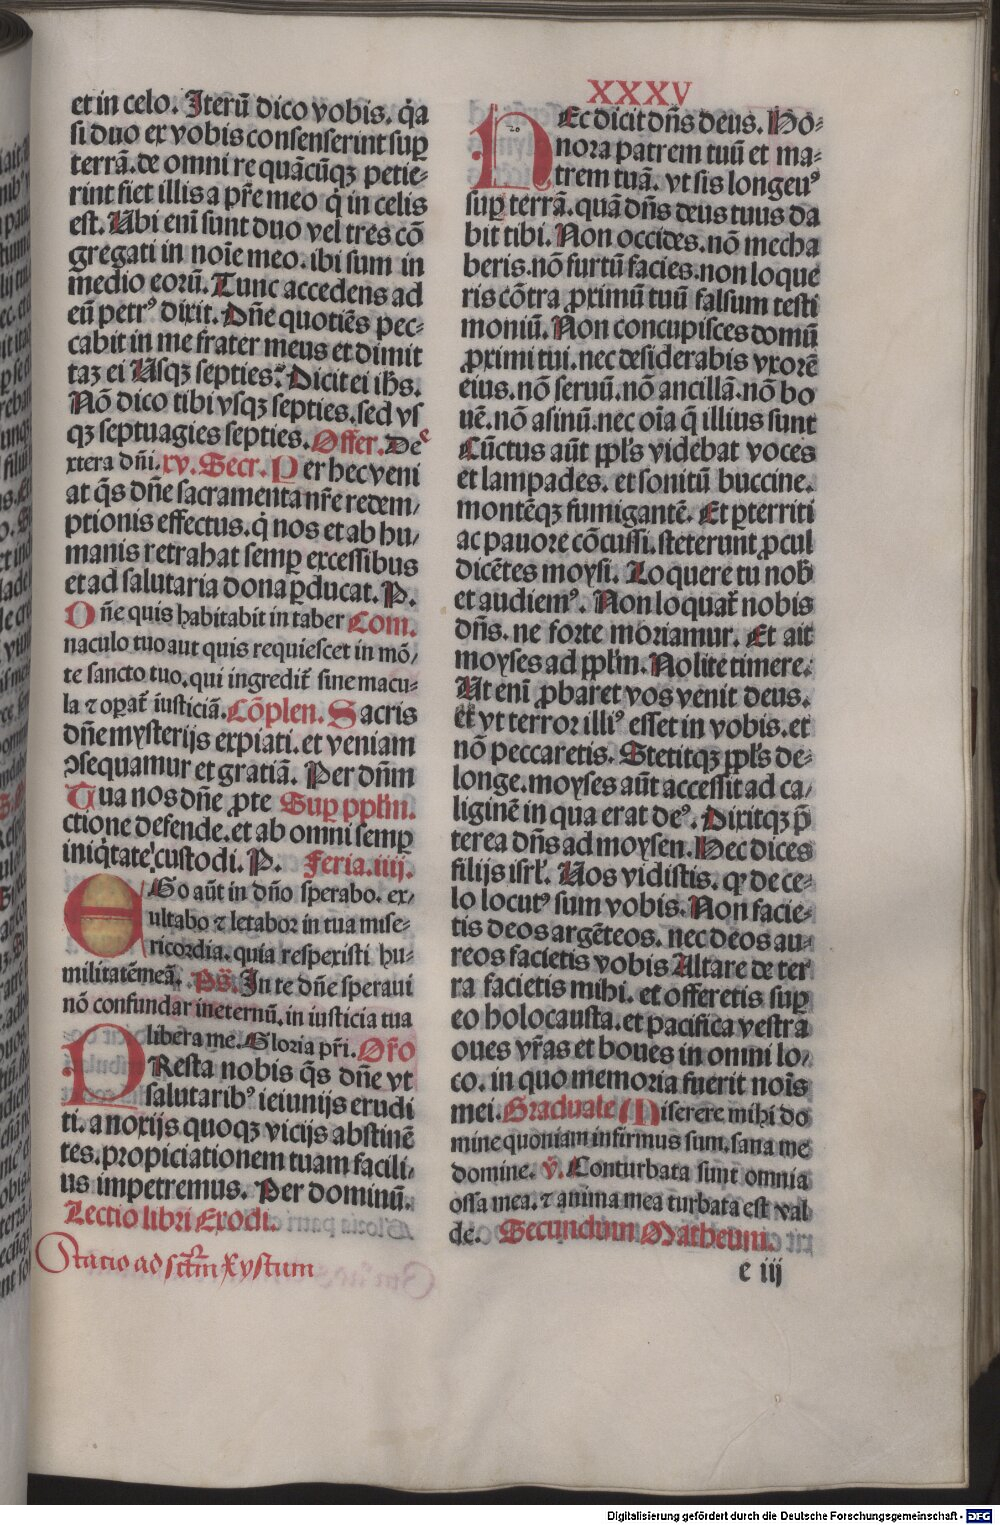 XXXV
et in celo. Iterū dico vobis. q̇a
si duo ex vobis consenserint sup̱
terrā. de omni re quācūqꝫ petie⸗
rint fiet illis a pr̄e meo q̇ in celis
est. Ubi enī sunt duo vel tres cō
gregati in noīe meo. ibi sum in
medio eorū. Tunc accedens ad
eū petrꝰ dixit. Dn̄e quotiēs pec⸗
cabit in me frater meus et dimit
taꝫ ei Usqꝫ septies. Dicit ei ihs̄.
Nō dico tibi vsqꝫ septies. sed vs
qꝫ septuagies septies. Offer. De
xtera dn̄i. xv. Secr. Per hec veni
at q̄s dn̄e sacramenta nr̄e redem/
ptionis effectus. q̇ nos et ab hu/
manis retrahat semp̱ excessibus
et ad salutaria dona ꝑducat. P.
Dn̄e quis habitabit in taber Com.
naculo tuo aut quis requiescet in mō/
te sancto tuo. qui ingredit̄ sine macu⸗
la ⁊ oꝑat̄ iusticiā. Cōplen. Sacris
dn̄e mysterijs expiati. et veniam
ꝯsequamur et gratiā. Per dn̄m
Tua nos dn̄e ꝓte Sup̱ pplm̄.
ctione defende. et ab omni semp̱
iniq̇tate custodi. P. Feria. iiij.
EGo aūt in dn̄o sperabo. ex/
ultabo ⁊ letabor in tua mise⸗
ricordia. quia respexisti hu⸗
militatē meā. Ps̄. In te dn̄e speraui
nō confundar in eternū. in iusticia tua
libera me. Gloria pr̄i. Or̄o
PResta nobis q̄s dn̄e vt
salutaribꝰ ieiunijs erudi
ti. a noxijs quoqꝫ vicijs abstinē
tes. propiciationem tuam facili/
us impetremus. Per dominū.
Lectio libri Exodi.
Statio ad sctm̄ Xystum
HEc dicit dn̄s deus. Ho⸗
nora patrem tuū et ma⸗
trem tuā. vt sis longeuꝰ
sup̱ terrā. quā dn̄s deus tuus da
bit tibi. Non occides. nō mecha
beris. nō furtū facies. non loque
ris cōtra ꝓximū tuū falsum testi
moniū. Non concupisces domū
ꝓximi tui. nec desiderabis vxorē
eius. nō seruū. nō ancillā. nō bo
uē. nō asinū. nec oīa q̄ illius sunt
Cūctus aūt ppl̄s videbat voces
et lampades. et sonitū buccine.
montēqꝫ fumigantē. Et ꝑterriti
ac pauore cōcussi. steterunt ꝓcul
dicētes moysi. Loquere tu nob̄
et audiemꝰ. Non loquat̄ nobis
dn̄s. ne forte moriamur. Et ait
moyses ad pplm̄. Nolite timere.
Ut enī ꝓbaret vos venit deus.
et vt terror illiꝰ esset in vobis. et
nō peccaretis. Stetitqꝫ ppl̄s de⸗
longe. moyses aūt accessit ad ca/
liginē in qua erat deꝰ. Dixitqꝫ p̄
terea dn̄s ad moysen. Hec dices
filijs isrl̄. Uos vidistis. qꝛ de ce⸗
lo locutꝰ sum vobis. Non facie⸗
tis deos argēteos. nec deos au⸗
reos facietis vobis Altare de ter
ra facietis mihi. et offeretis sup̱
eo holocausta. et pacifica vestra
oues vr̄as et boues in omni lo/
co. in quo memoria fuerit noīs
mei. Graduale Miserere mihi do
mine quoniam infirmus sum. sana me
domine. V̄. Conturbata sunt omnia
ossa mea. ⁊ anima mea turbata est val
de. Secundum Matheum.
e iij
Digitalisierung gefördert durch die Deutsche Forschungsgemeinschaft - DFG